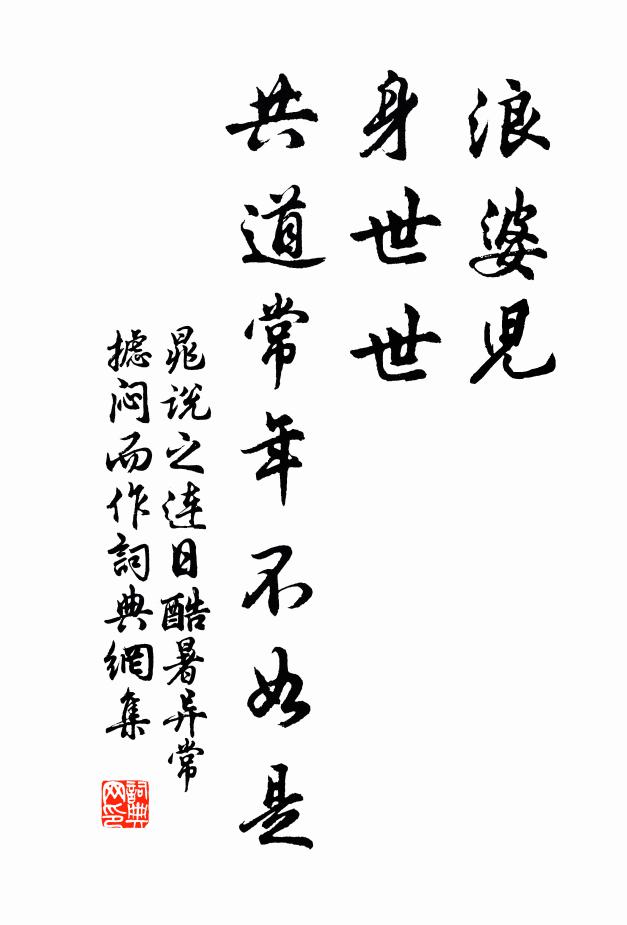 浪婆児
身世世
共道常年不如是
晁说之连日酷暑异常
摅闷而作詞典網集
詞典网印